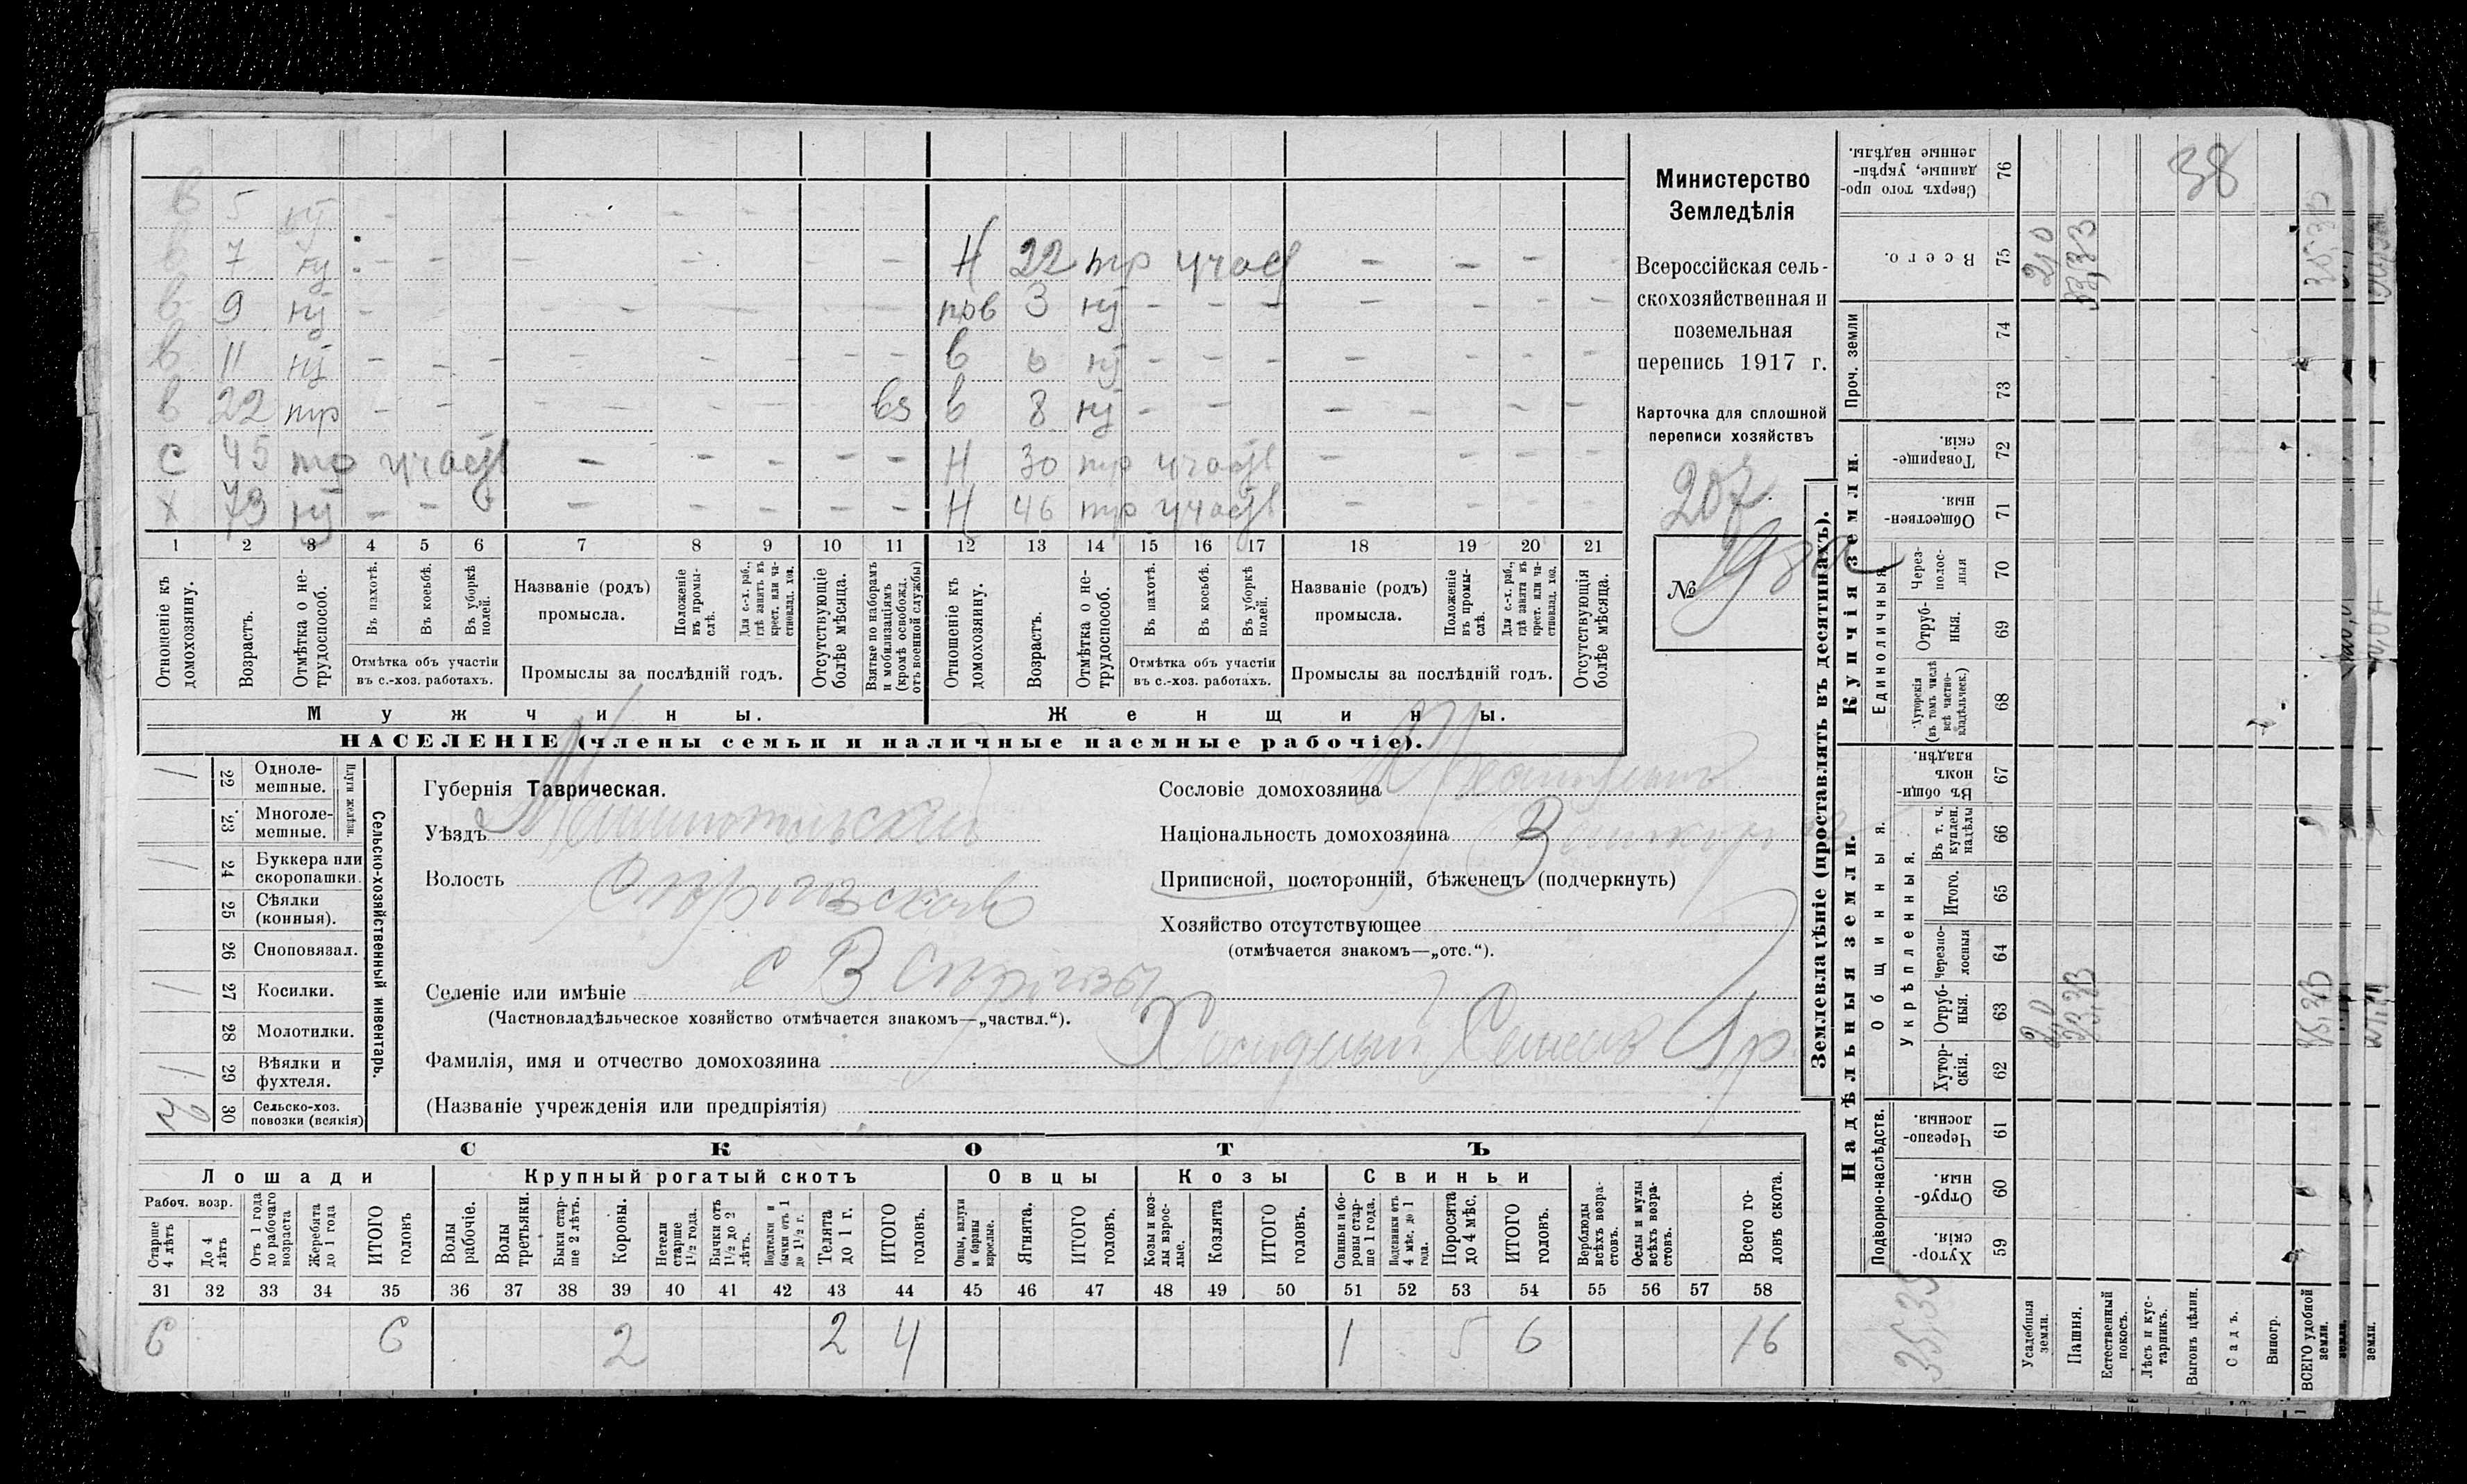 в 5 нӯ - - - - - - - -
в 7 нӯ - - - - - - - -
Н 22 тр участ - - -
в 9 нӯ - - - - - - - -
пов 3 нӯ - - - - - - -
в 11 нӯ - - - - - - - -
в 6 нӯ - - - - - - -
в 22 тр - - - - - - вз
в 8 нӯ - - - - - -
С 45 тр участв - - - - -
Н 30 тр участв - - - -
Х 73 нӯ - - - - - - - -
Н 46 тр участв - - - -
1 2 3 4 5 6 7 8 9 10 11 12 13 14 15 16 17 18 19 20 21
Отношеніе къ домохозяину.
Возрастъ.
Отмѣтка о нетрудоспособ.
Въ пахотѣ.
Въ косьбѣ.
Въ уборкѣ полей.
Отмѣтка объ участіи
въ с.-хоз. работахъ.
Названіе (родъ)
промысла.
Положеніе въ промыслѣ.
Для с.-х. раб., гдѣ занятъ въ крест. или частновлад. хоз.
Промыслы за послѣдній годъ.
Отсутствующіе болѣе мѣсяца.
Взятые по наборамъ и мобилизаціямъ (кромѣ освобожд. отъ военной службы)
Отношеніе къ домохозяину.
Возрастъ.
Отмѣтка о нетрудоспособ.
Въ пахотѣ.
Въ косьбѣ.
Въ уборкѣ полей.
Отмѣтка объ участіи
въ с.-хоз. работахъ.
Названіе (родъ)
промысла.
Положеніе въ промыслѣ.
Для с.-х. раб., гдѣ занята въ крест. или частновлад. хоз.
Промыслы за послѣдній годъ.
Отсутствующія болѣе мѣсяца.
Мужчины.
Женщины.
НАСЕЛЕНІЕ (члены семьи и наличные наемные рабочіе).
Министерство
Земледѣлія
Всероссійская сель-
скохозяйственная и
поземельная
перепись 1917 г.
Карточка для сплошной
переписи хозяйствъ
207
№ 198а
Сельско-хозяйственный инвентарь.
Плуги желѣзн.
1 22 Одноле-
мешные.
23 Многоле-
мешные.
1 24 Буккера или
скоропашки.
25 Сѣялки
(конныя).
26 Сноповязал.
1 27 Косилки.
28 Молотилки.
1 29 Вѣялки и
фухтеля.
30 Сельско-хоз.
повозки (всякія)
Губернія Таврическая.
Уѣздъ Мелитопольскій
Волость
Селеніе или имѣніе с В
(Частновладѣльческое хозяйство отмѣчается знакомъ—„частвл.“).
Фамилія, имя и отчество домохозяина
(Названіе учрежденія или предпріятія)
Сословіе домохозяина
Національность домохозяина
Приписной, посторонній, бѣженецъ (подчеркнуть)
Хозяйство отсутствующее
(отмѣчается знакомъ—„отс.“).
СКОТЪ
Лошади
Крупный рогатый скотъ
Овцы
Козы
Свиньи
Рабоч. возр.
Старше 4 лѣтъ
До 4 лѣтъ
Отъ 1 года до рабочаго возраста
Жеребята до 1 года
ИТОГО головъ
Волы рабочіе.
Волы третьяки.
Быки старше 2 лѣтъ.
Коровы.
Нетели старше 1½ года.
Бычки отъ 1½ до 2 лѣтъ.
Подтелки и бычки отъ 1 до 1½ г.
Телята до 1 г.
ИТОГО головъ.
Овцы, валухи и бараны взрослые.
Ягнята.
ИТОГО головъ.
Козы и козлы взрослые.
Козлята
ИТОГО головъ.
Свиньи и боровы старше 1 года.
Подсвинки отъ 4 мѣс. до 1 года.
Поросята до 4 мѣс.
ИТОГО головъ.
Верблюды всѣхъ возрастовъ.
Ослы и мулы всѣхъ возрастовъ.
Всего головъ скота.
31 32 33 34 35 36 37 38 39 40 41 42 43 44 45 46 47 48 49 50 51 52 53 54 55 56 57 58
6 6 2 2 4 1 5 6 16
Землевладѣніе (проставлять въ десятинахъ).
Надѣльныя земли.
Купчія земли.
Проч. земли
Подворно-наслѣдств.
Общинныя.
Укрѣпленныя.
Единоличныя.
Хуторскія. 59
Отрубныя. 60
Черезполосныя. 61
Хуторскія. 62
Отрубныя. 63
Черезполосныя 64
Итого. 65
Въ т. ч. куплен. надѣлы 66
Въ общинномъ владѣн. 67
Хуторскія (въ томъ числѣ всѣ частновладѣльческ.) 68
Отрубныя. 69
Черезполосныя 70
Общественныя. 71
Товарищескія. 72
73
74
Всего. 75
Сверхъ того проданные, укрѣпленные надѣлы. 76
Усадебныя земли. 2,0 2,0
Пашня. 33,33 33,33
Естественный покосъ.
Лѣсъ и кустарникъ.
Выгонъ цѣлин.
Садъ.
Виногр.
ВСЕГО удобной земли. 35,33 35,33
земли.
38
35,33